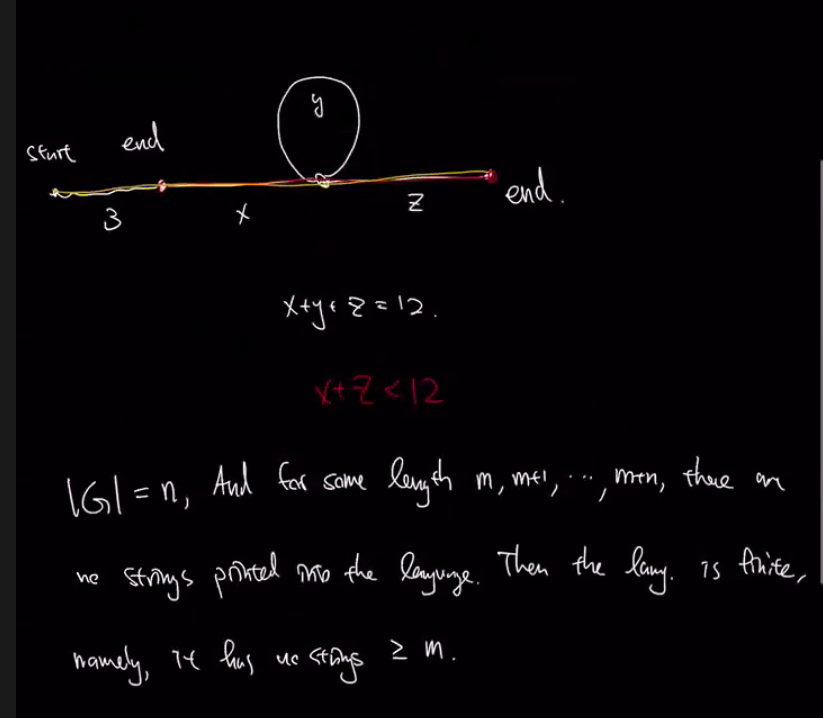 y
start end
end.
3 x z
x+y+z=12.
x+z<12
|G|=n, And for some length m, m+1, ..., m+n, there are
no strings printed into the language. Then the lang. is finite,
namely, it has no strings ≥ m.